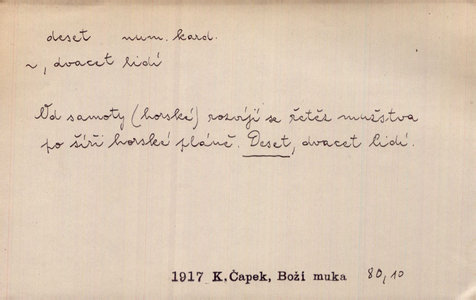 deset num. kard.
~, dvacet lidí
Od samoty (horské) rozvíjí se řetěz mužstva
po šíři horské pláně. Deset, dvacet lidí.
1917 K. Čapek, Boží muka 80,10